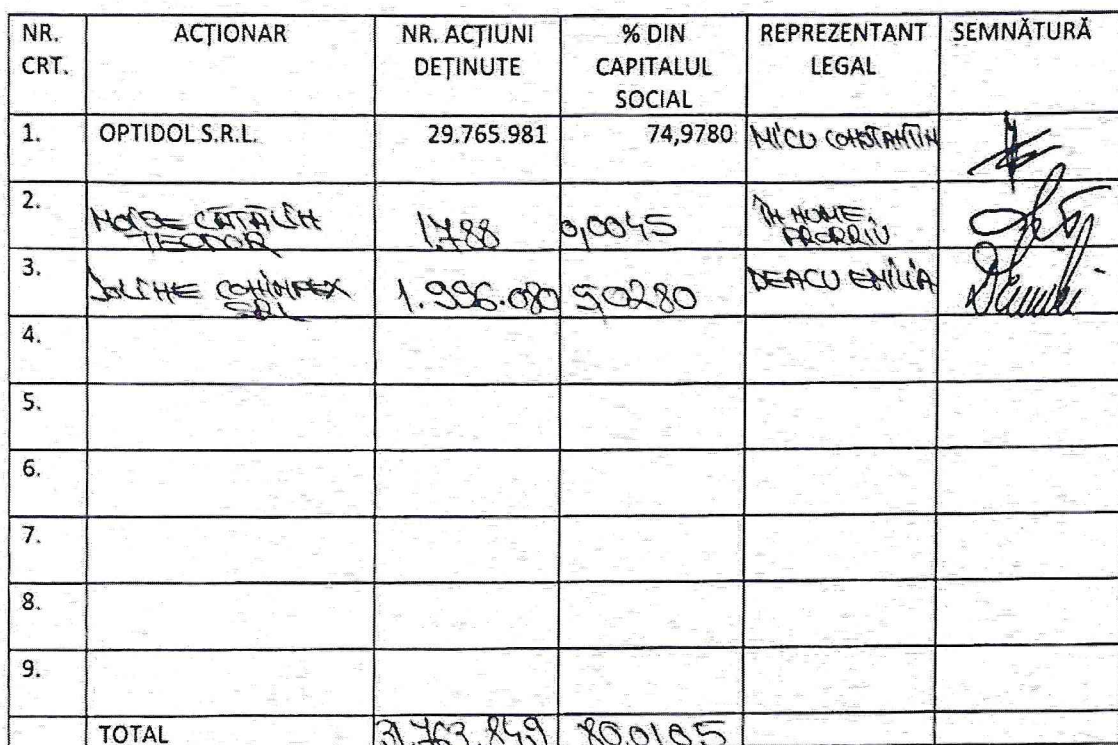 NR. CRT. ACȚIONAR NR. ACȚIUNI DEȚINUTE % DIN CAPITALUL SOCIAL REPREZENTANT LEGAL SEMNĂTURĂ
1. OPTIDOL S.R.L. 29.765.981 74,9780 MICU CONSTANTIN
2. CĂTĂLIN TEODOR 1.788 0,0045 ÎN NUME PROPRIU
3. COMIMPEX SRL 1.996.080 5,0280 DEACU EMILIA
4.
5.
6.
7.
8.
9.
TOTAL 31.763.849 80.0105